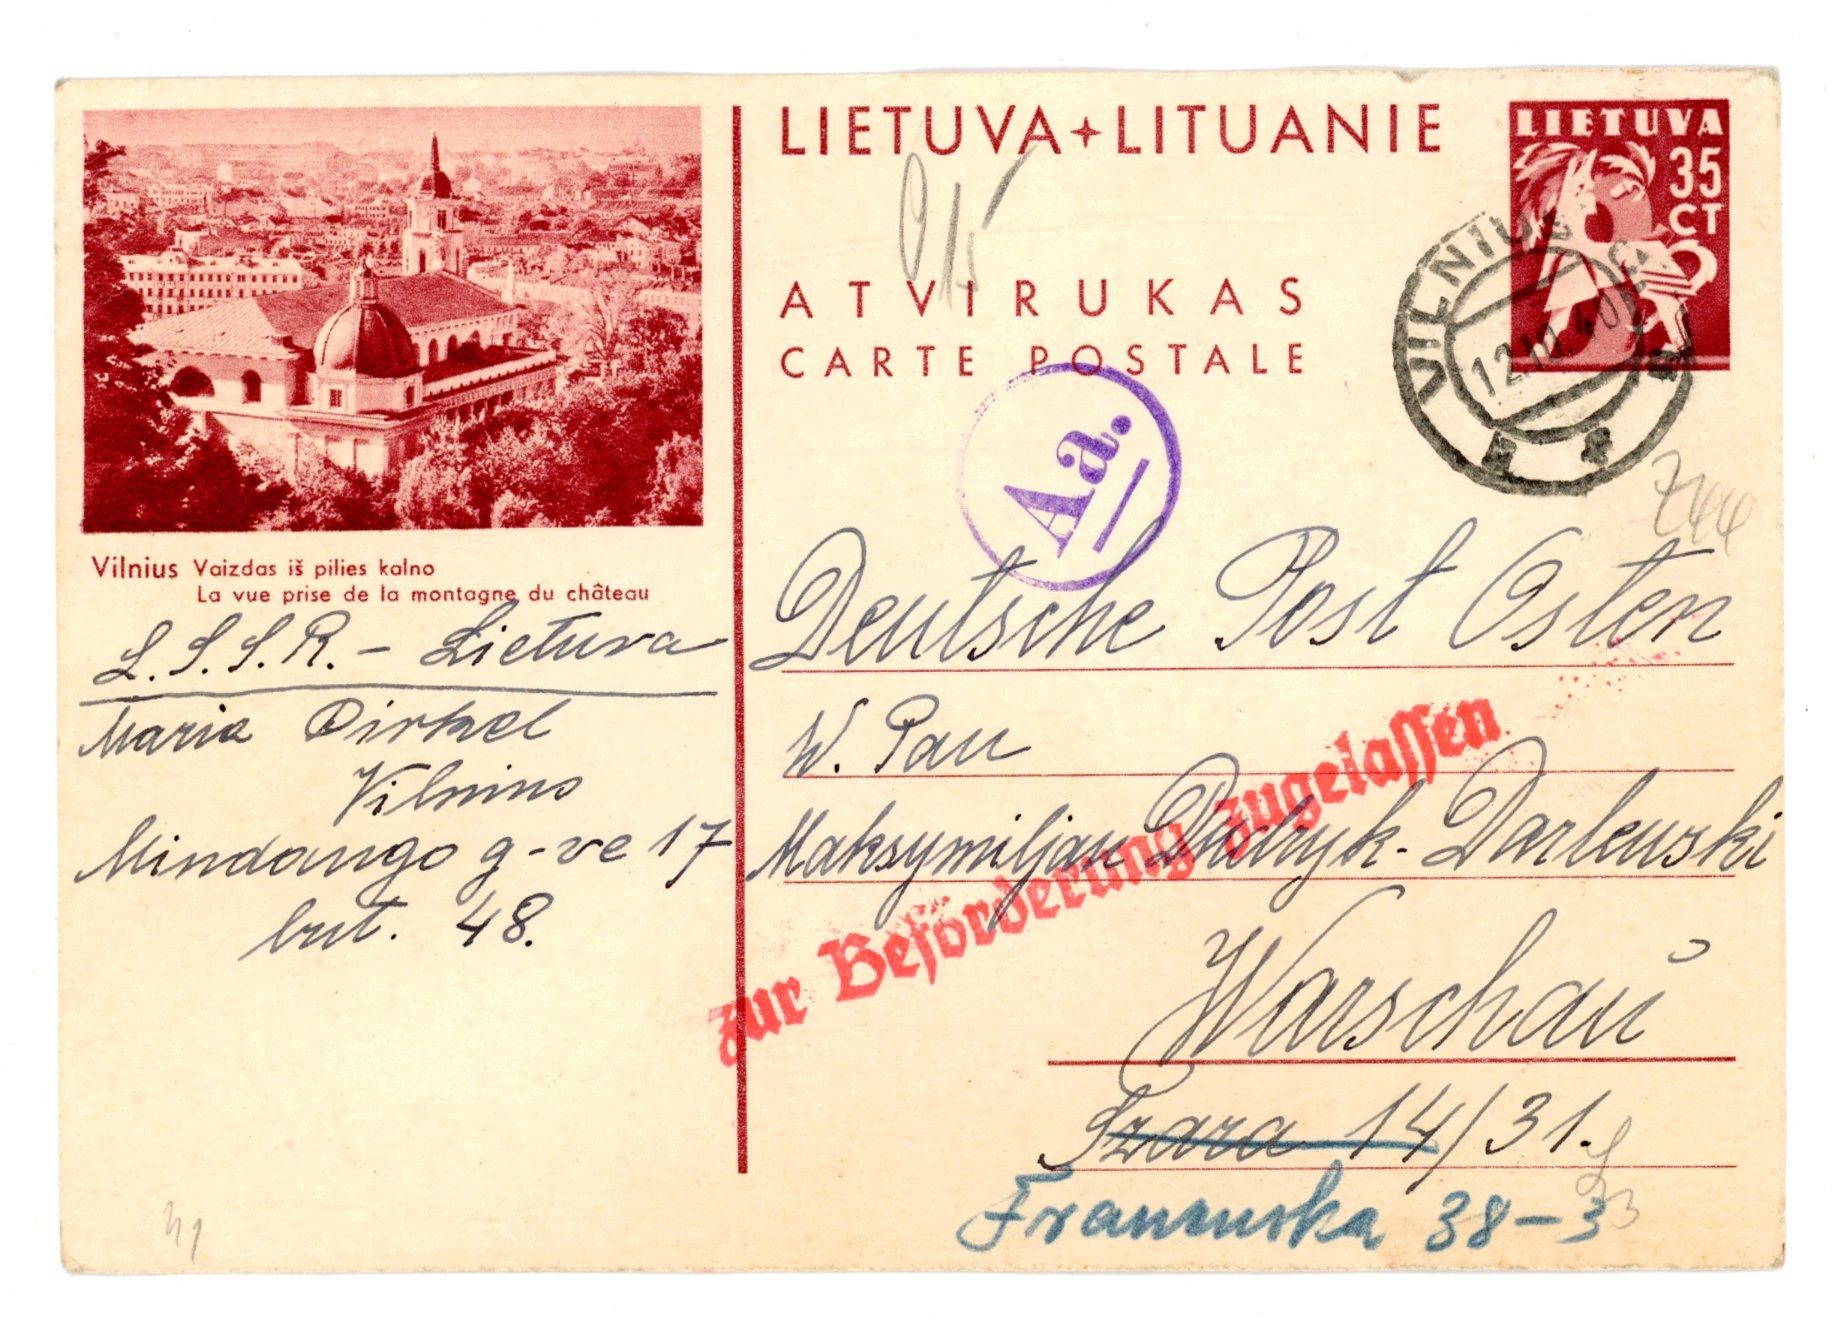 LIETUVA + LITUANIE
LIETUVA
35
CT
ATVIRUKAS
CARTE POSTALE
VILNIUS
12.10.40
Aa.
Vilnius Vaizdas iš pilies kalno
La vue prise de la montagne du château
L.S.S.R. - Lietuva
Maria Dirkel
Vilnius
Mindaugo g-ve 17
but. 48.
Deutsche Post Osten
W. Pan
Maksymiljan Darlewski
zur Beförderung zugelassen
Warschau
Szara 14/31.
Franzuska 38-33